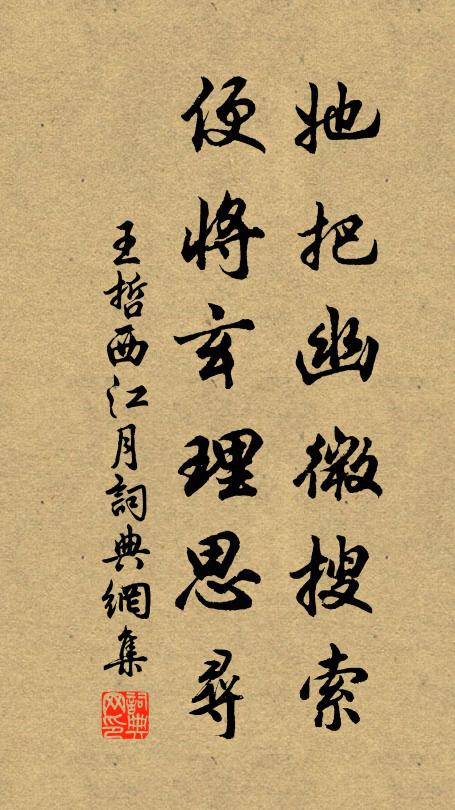 她把幽微搜索
便將玄理思尋
王哲西江月詞典網集
詞典
网印